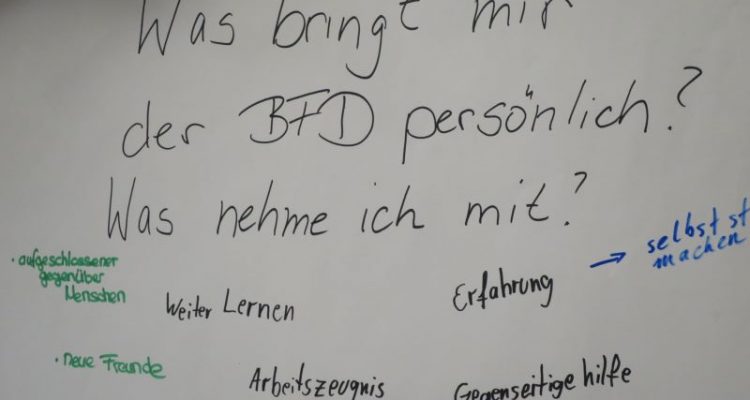 Was bringt mir
der BFD persönlich?
Was nehme ich mit?
· aufgeschlossener
gegenüber
Menschen
Weiter Lernen
Erfahrung
→ selbst
machen
· neue Freunde
Arbeitszeugnis
Gegenseitige hilfe